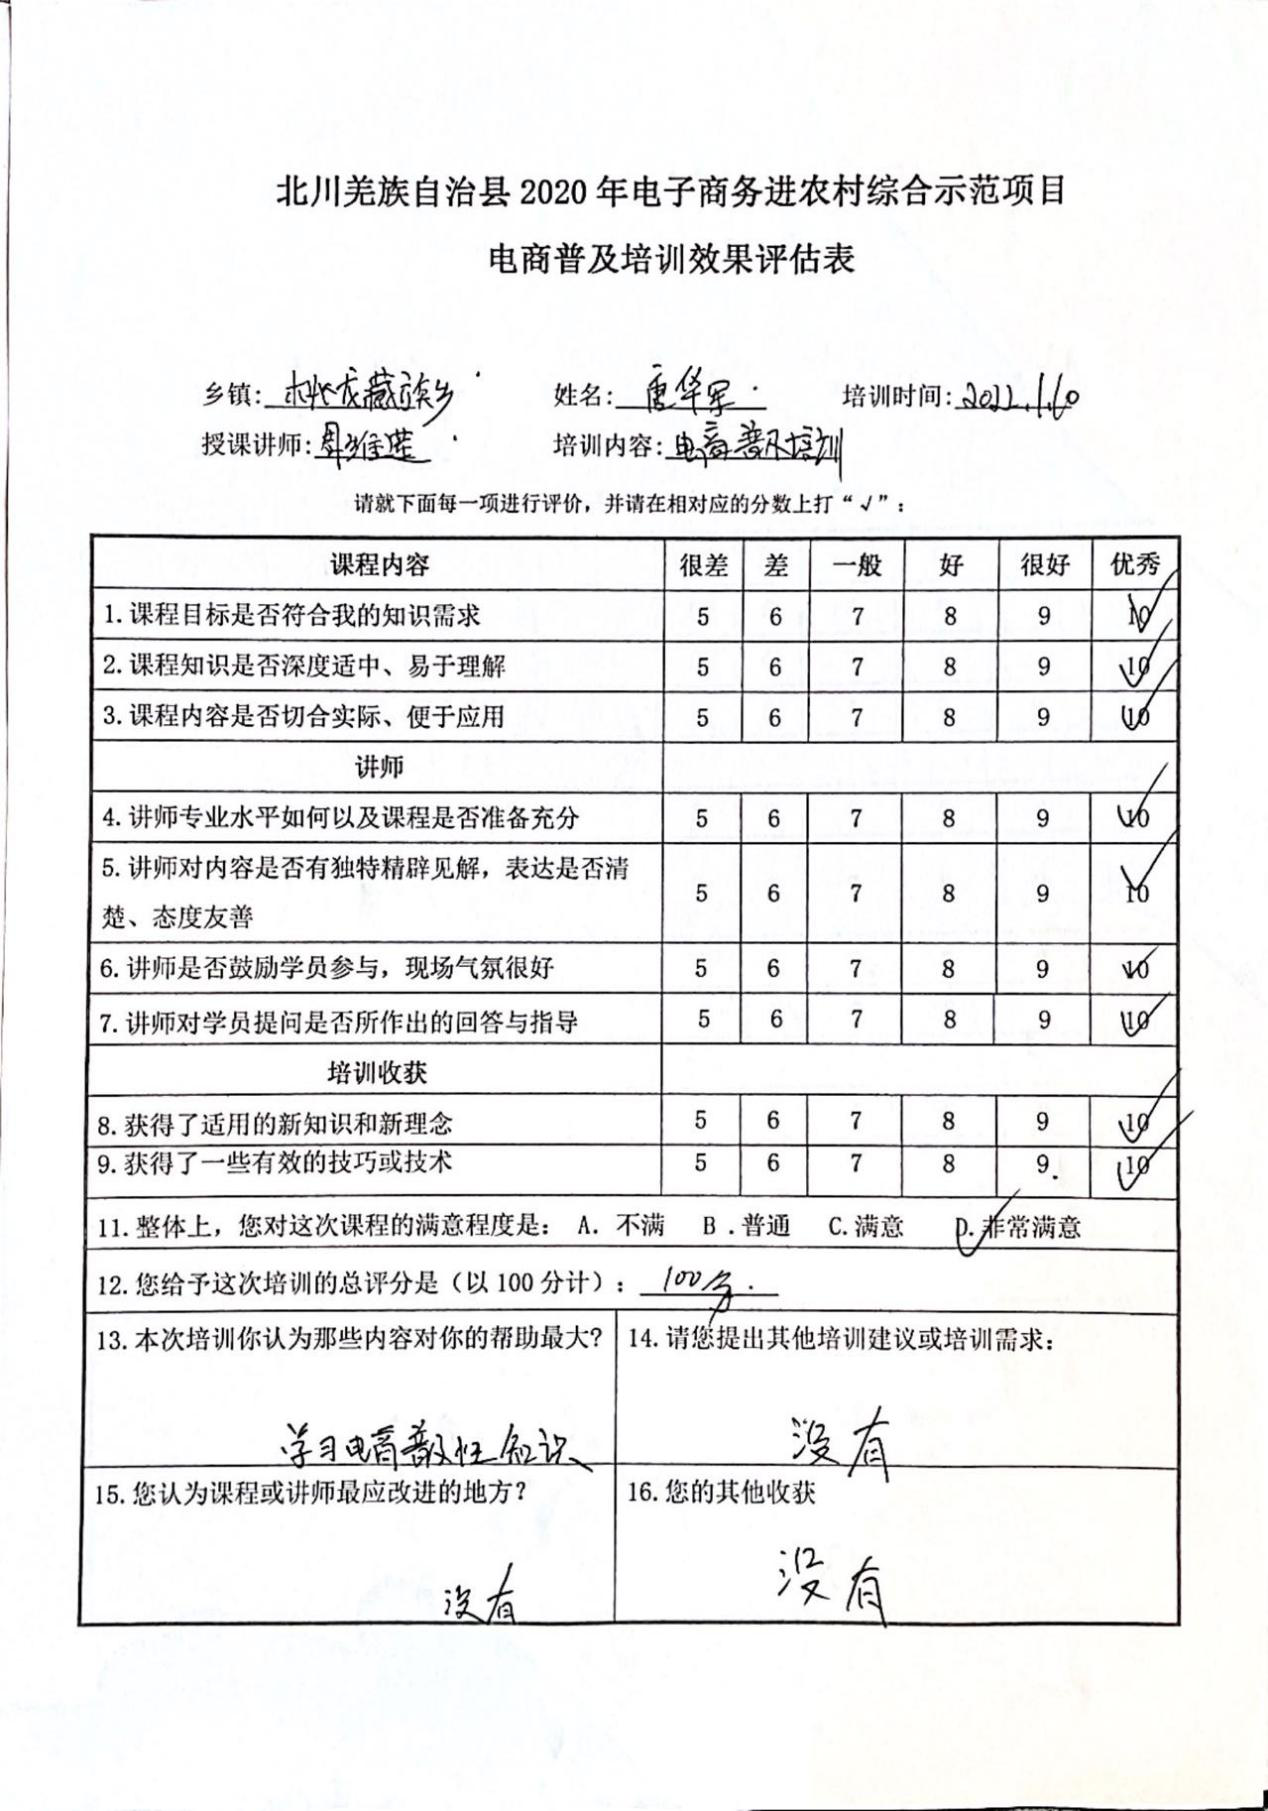 北川羌族自治县 2020 年电子商务进农村综合示范项目
电商普及培训效果评估表
乡镇: 桃龙藏族乡 姓名: 唐华军 培训时间: 2022.1.10
授课讲师: 培训内容: 电商普及培训
请就下面每一项进行评价，并请在相对应的分数上打“√”:
课程内容 很差 差 一般 好 很好 优秀
1.课程目标是否符合我的知识需求 5 6 7 8 9 10
2.课程知识是否深度适中、易于理解 5 6 7 8 9 10
3.课程内容是否切合实际、便于应用 5 6 7 8 9 10
讲师
4.讲师专业水平如何以及课程是否准备充分 5 6 7 8 9 10
5.讲师对内容是否有独特精辟见解，表达是否清
楚、态度友善 5 6 7 8 9 10
6.讲师是否鼓励学员参与，现场气氛很好 5 6 7 8 9 10
7.讲师对学员提问是否所作出的回答与指导 5 6 7 8 9 10
培训收获
8.获得了适用的新知识和新理念 5 6 7 8 9 10
9.获得了一些有效的技巧或技术 5 6 7 8 9 10
11.整体上，您对这次课程的满意程度是: A. 不满 B.普通 C.满意 D.非常满意
12.您给予这次培训的总评分是（以 100 分计）: 100分.
13.本次培训你认为那些内容对你的帮助最大?
学习电商普及性知识
14.请您提出其他培训建议或培训需求:
没有
15.您认为课程或讲师最应改进的地方?
没有
16.您的其他收获
没有